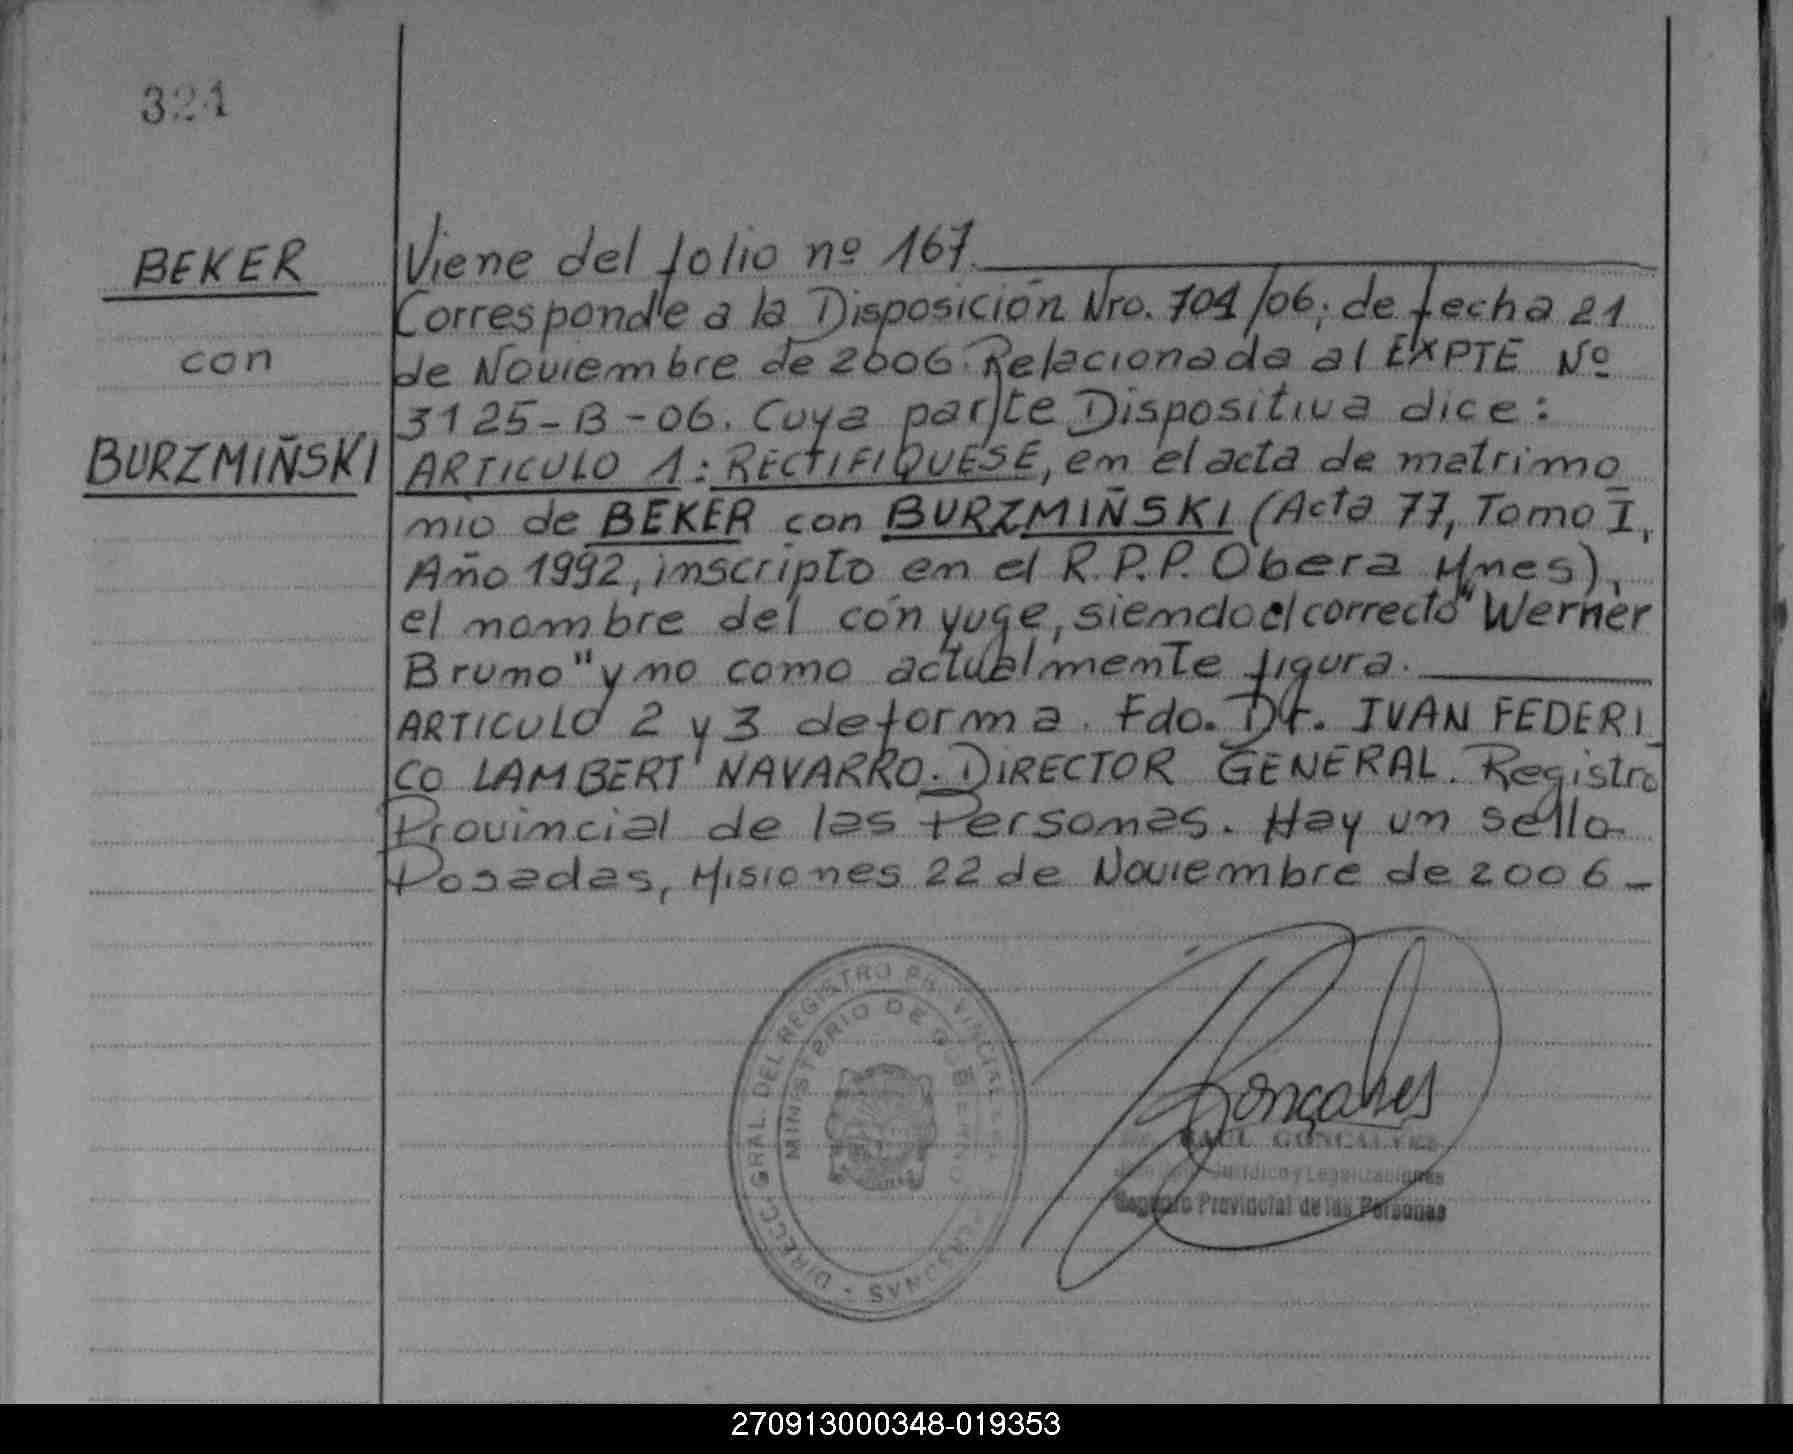 324
BEKER
con
BURZMIÑSKI
Viene del folio nº 167.
Corresponde a la Disposición Nro. 704/06; de fecha 21
de Noviembre de 2006. Relacionada al EXPTE Nº
3125-B-06. Cuya parte Dispositiva dice:
ARTICULO 1: RECTIFIQUESE, en el acta de matrimo
nio de BEKER con BURZMIÑSKI (Acta 77, Tomo I,
Año 1992, inscripto en el R.P.P. Obera Mnes),
el nombre del cónyuge, siendo el correcto "Werner
Bruno" y no como actualmente figura.
ARTICULO 2 y 3 de forma. Fdo. Dr. IVAN FEDERI_
CO LAMBERT NAVARRO. DIRECTOR GENERAL. Registro
Provincial de las Personas. Hay un sello.
Posadas, Misiones 22 de Noviembre de 2006-
DIRECC. GRAL. DEL REGISTRO PROVINCIAL DE LAS PERSONAS
MINISTERIO DE GOBIERNO
Gonçalves
RAUL GONCALVES
Jurídico y Legalizaciones
Registro Provincial de las Personas
270913000348-019353